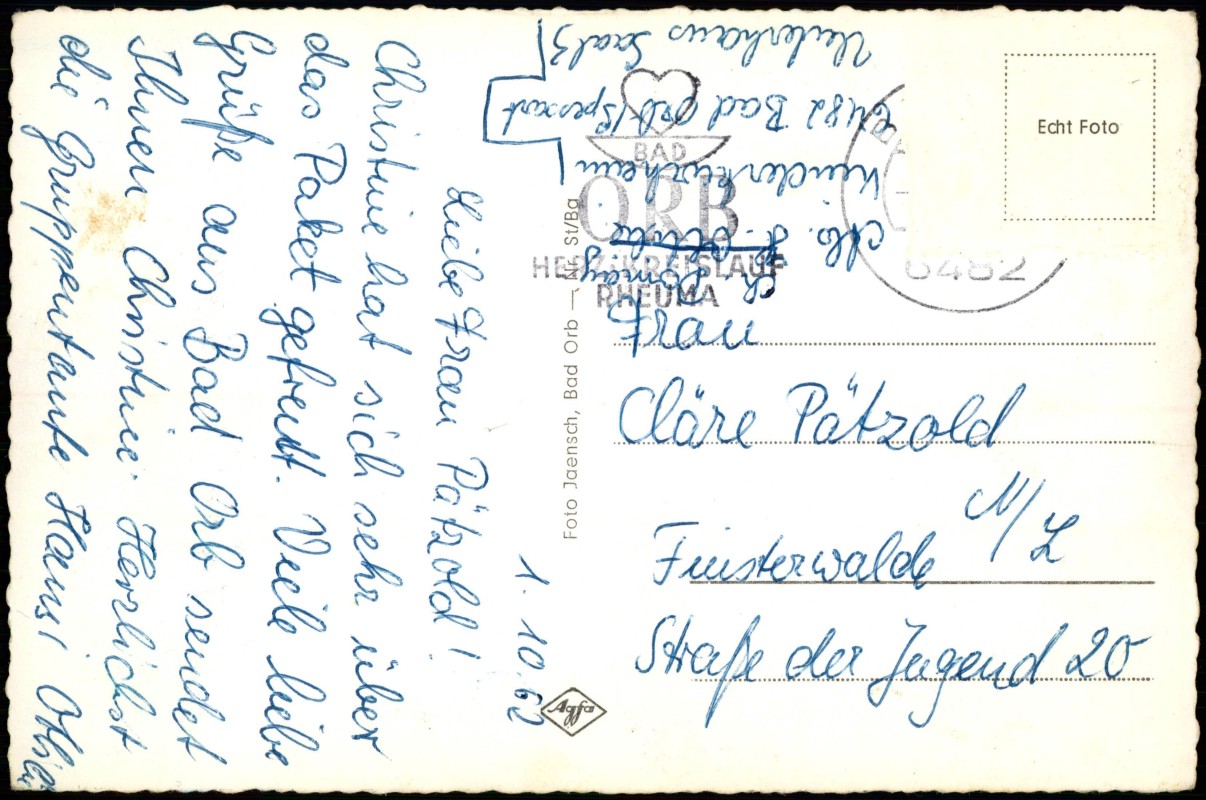 1. 10. 62
Liebe Frau Pätzold!
Christine hat sich sehr über
das Paket gefreut. Viele liebe
Grüße aus Bad Orb sendet
Ihnen Christine. Herzlichst
die Gruppentante Hansi
Foto Jaensch, Bad Orb — Nr. St/Ba
Agfa
Echt Foto
BAD
ORB
HERZ-KREISLAUF
RHEUMA
6482
Abs.
Kinderkurheim
6482 Bad Orb/Spessart
Frau
Cläre Pätzold
Finsterwalde N/L
Straße der Jugend 20